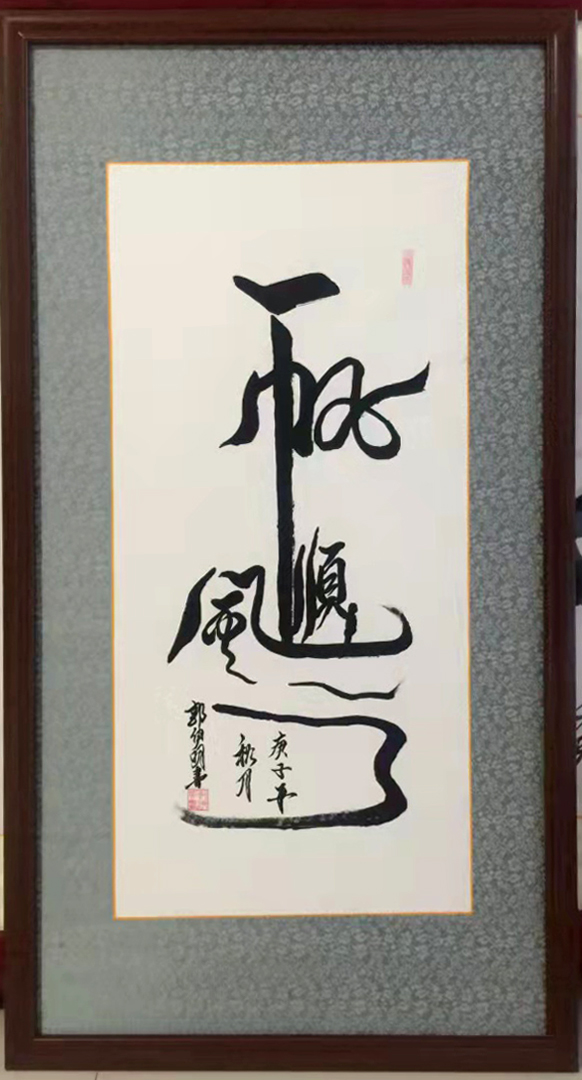 一帆順風
庚子年
秋月
郭伯明書